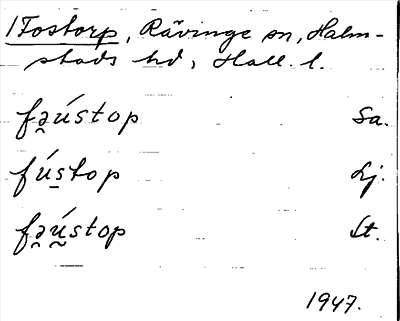 1 Fostorp, Rävinge sn, Halm-
stads hd, Hall. l.
fə̯ústop Sa.
fús̲top Lj.
fə̯ú̮stop St.
1947.